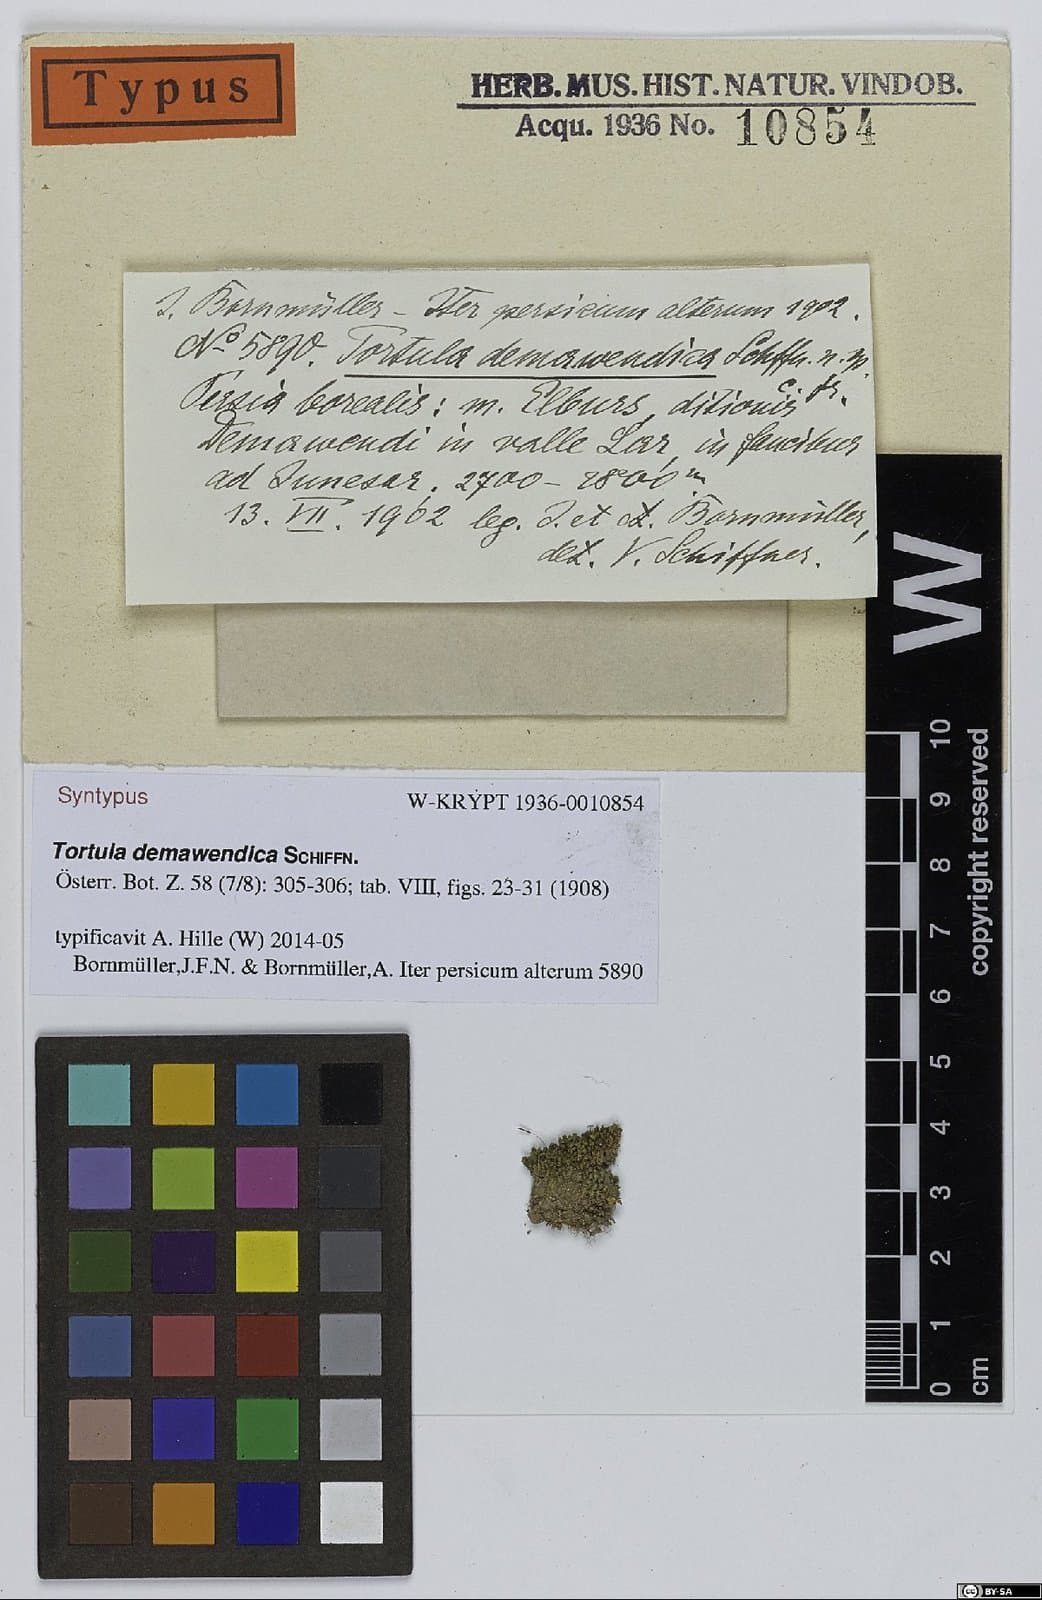 Typus
HERB. MUS. HIST. NATUR. VINDOB.
Acqu. 1936 No. 10854
J. Bornmüller – Iter persicum alterum 1902.
No 5890. Tortula demawendica Schffn. n. sp.
c. fr.
Persia borealis: m. Elburs, ditionis
Demawendi in valle Lar, in faucibus
ad Junesar, 2700 – 2800 m
13. VII. 1902 leg. J. et A. Bornmüller,
det. V. Schiffner.
W
Syntypus W-KRYPT 1936-0010854
Tortula demawendica SCHIFFN.
Österr. Bot. Z. 58 (7/8): 305-306; tab. VIII, figs. 23-31 (1908)
typificavit A. Hille (W) 2014-05
Bornmüller,J.F.N. & Bornmüller,A. Iter persicum alterum 5890
copyright reserved
10
9
8
7
6
5
4
3
2
1
0
cm
cc BY-SA